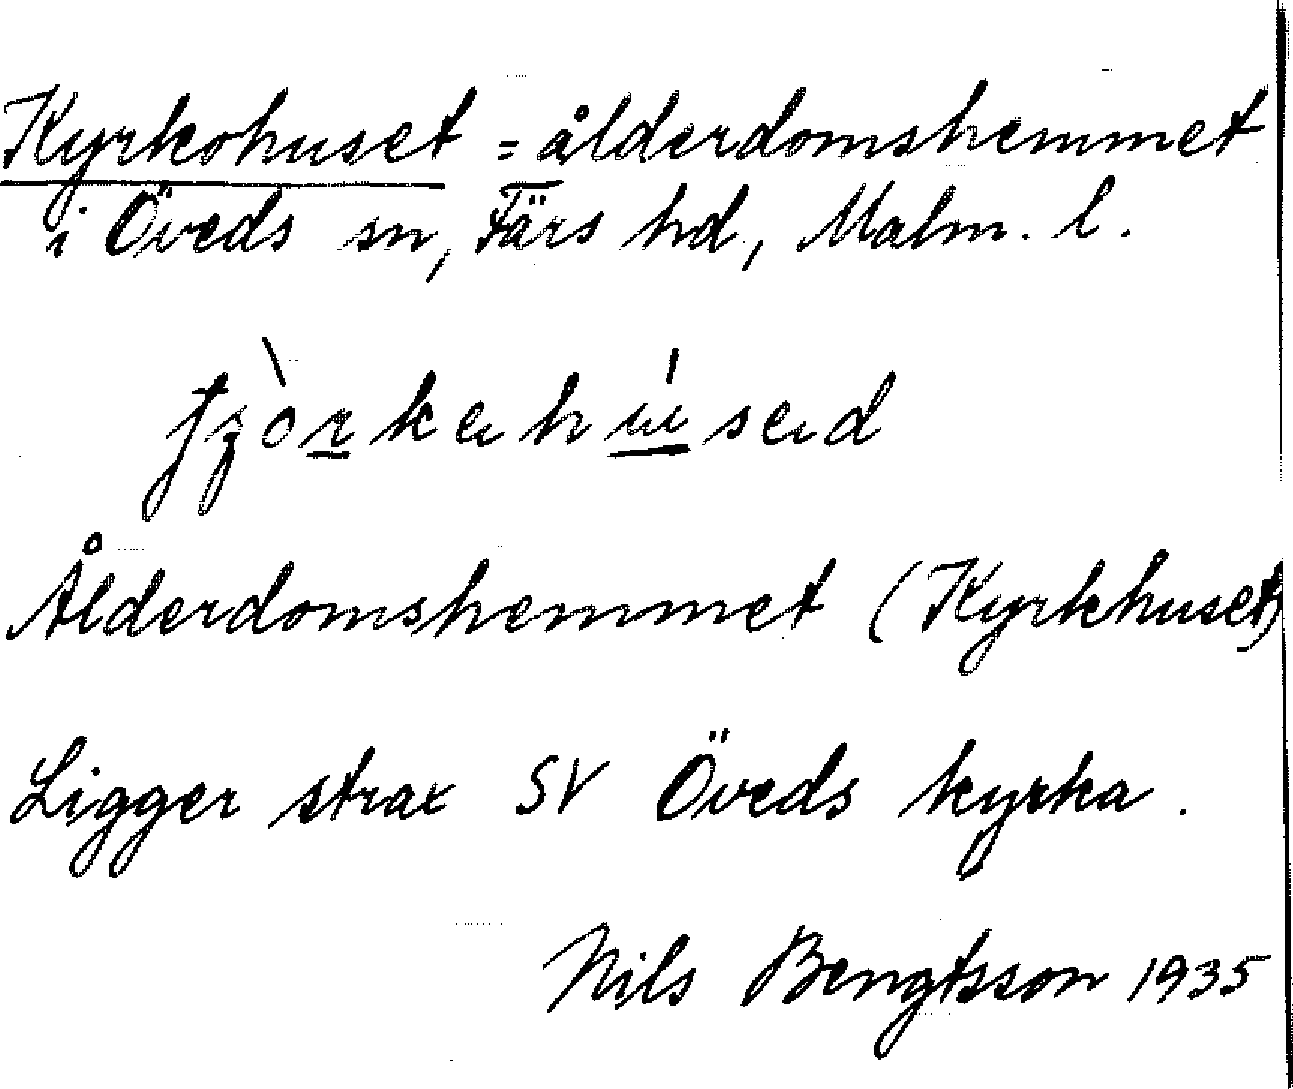 Kyrkohuset = ålderdomshemmet
i Öveds sn, Färs hd, Malm. l.
Ålderdomshemmet (Kyrkhuset)
Ligger strax SV Öveds kyrka.
Nils Bengtsson 1935